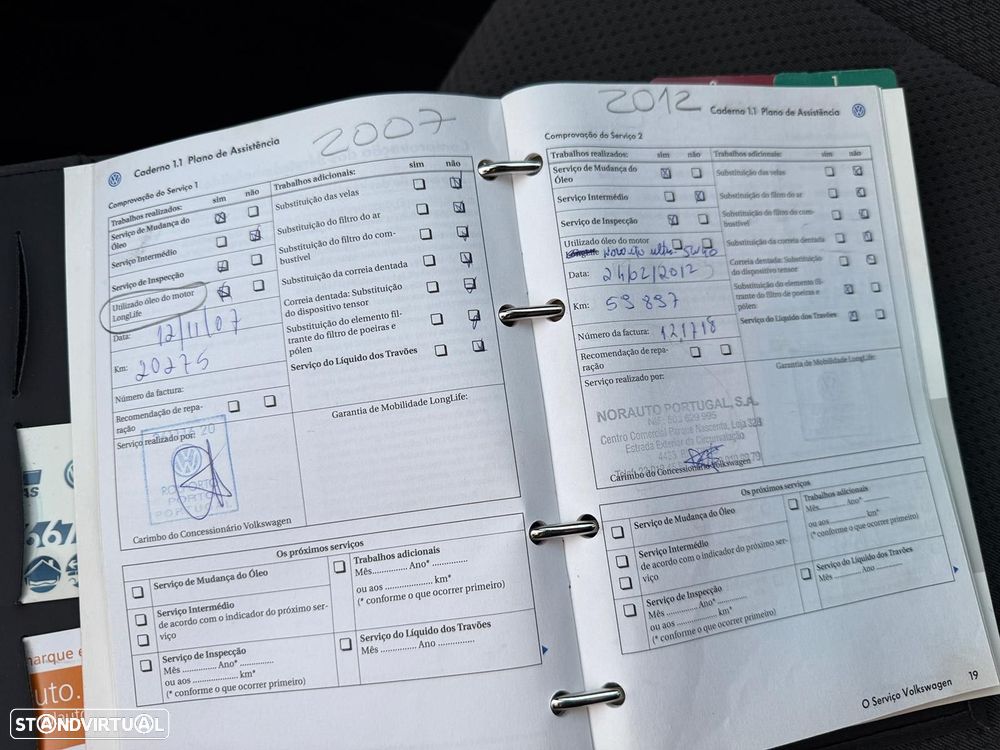 2007
Caderno 1.1 Plano de Assistência
Comprovação do Serviço 1
Trabalhos realizados: sim não
Serviço de Mudança do Óleo
Serviço Intermédio
Serviço de Inspecção
Utilizado óleo do motor LongLife
Data: 12/11/07
Km: 20275
Número da factura:
Recomendação de reparação
Serviço realizado por:
PORTUGAL
Carimbo do Concessionário Volkswagen
Trabalhos adicionais: sim não
Substituição das velas
Substituição do filtro do ar
Substituição do filtro do combustível
Substituição da correia dentada
Correia dentada: Substituição do dispositivo tensor
Substituição do elemento filtrante do filtro de poeiras e pólen
Serviço do Líquido dos Travões
Garantia de Mobilidade LongLife:
Os próximos serviços
Serviço de Mudança do Óleo
Serviço Intermédio
de acordo com o indicador do próximo serviço
Serviço de Inspecção
Mês .............. Ano* ..............
ou aos .................... km*
(* conforme o que ocorrer primeiro)
Trabalhos adicionais
Mês.............. Ano* ..............
ou aos .................... km*
(* conforme o que ocorrer primeiro)
Serviço do Líquido dos Travões
Mês .............. Ano ..............
2012
Caderno 1.1 Plano de Assistência
Comprovação do Serviço 2
Trabalhos realizados: sim não
Serviço de Mudança do Óleo
Serviço Intermédio
Serviço de Inspecção
Utilizado óleo do motor
5W40
Data: 24/02/2012
Km: 59897
Número da factura: 121718
Recomendação de reparação
Serviço realizado por:
NORAUTO PORTUGAL, S.A.
Centro Comercial Parque Nascente, Loja
Estrada Exterior da Circunvalação
Carimbo do Concessionário Volkswagen
Trabalhos adicionais: sim não
Substituição das velas
Substituição do filtro do ar
Substituição do filtro do combustível
Substituição da correia dentada
Correia dentada: Substituição do dispositivo tensor
Substituição do elemento filtrante do filtro de poeiras e pólen
Serviço do Líquido dos Travões
Garantia de Mobilidade LongLife:
Os próximos serviços
Serviço de Mudança do Óleo
Serviço Intermédio
de acordo com o indicador do próximo serviço
Serviço de Inspecção
Mês .............. Ano* ..............
ou aos .................... km*
(* conforme o que ocorrer primeiro)
Trabalhos adicionais
Mês.............. Ano* ..............
ou aos .................... km*
(* conforme o que ocorrer primeiro)
Serviço do Líquido dos Travões
Mês .............. Ano ..............
O Serviço Volkswagen 19
1
uto.
STANDVIRTUAL